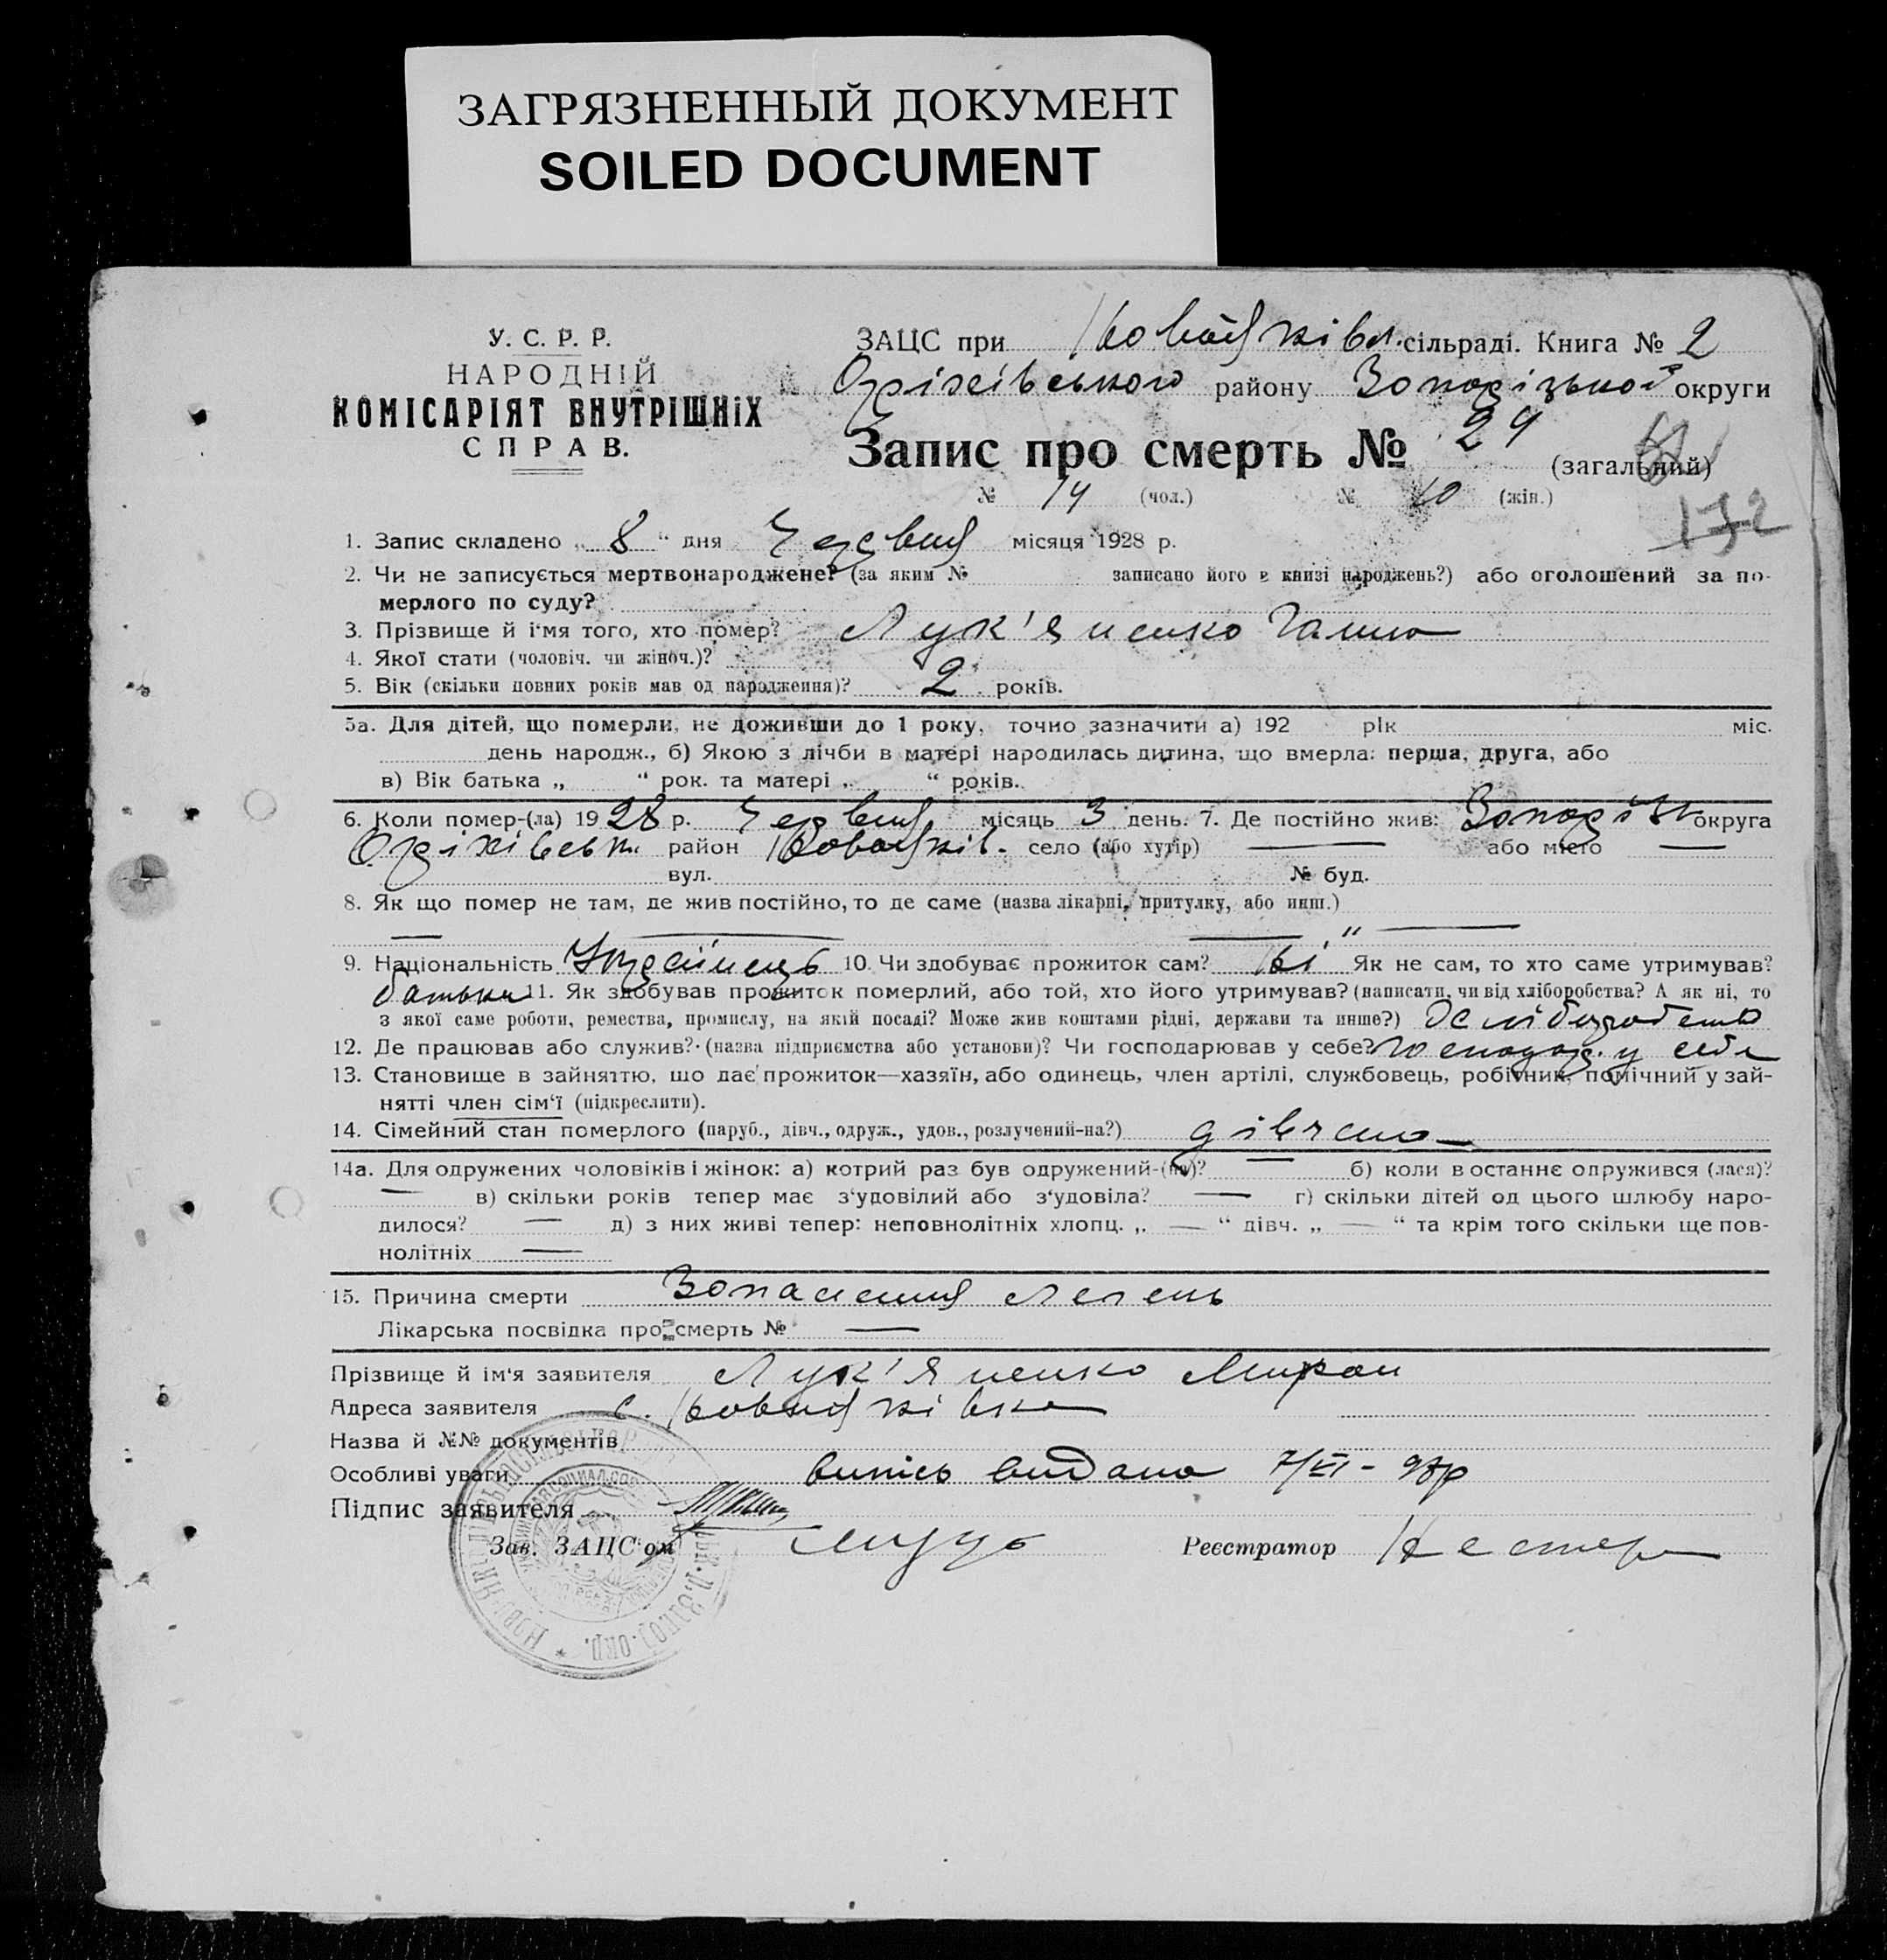 ЗАГРЯЗНЕННЫЙ ДОКУМЕНТ
SOILED DOCUMENT
У. С. Р. Р.
НАРОДНІЙ
КОМІСАРІЯТ ВНУТРІШНІХ
СПРАВ.
ЗАЦС при Новояківл. сільраді. Книга № 2
Оріхівського району Запорізької округи
Запис про смерть № 24 (загальний)
№ 14 (чол.) № 10 (жін.)
172
1. Запис складено „ 8 “ дня Червня місяця 1928 р.
2. Чи не записується мертвонароджене? (за яким № записано його в книзі народжень?) або оголошений за по-
мерлого по суду?
3. Прізвище й і‘мя того, хто помер? Лук'яненко Галина
4. Якої стати (чоловіч. чи жіноч.)?
5. Вік (скільки повних років мав од народження)? 2 років.
5а. Для дітей, що померли, не доживши до 1 року, точно зазначити а) 192 рік міс.
день народж., б) Якою з лічби в матері народилась дитина, що вмерла: перша, друга, або
в) Вік батька „ “ рок. та матері „ “ років.
6. Коли помер-(ла) 1928 р. Червня місяць 3 день. 7. Де постійно жив: Запоріз округа
Оріхівськ. район Новояків. село (або хутір) — або місто —
вул. № буд.
8. Як що помер не там, де жив постійно, то де саме (назва лікарні, притулку, або инш.)
— — — " —
9. Національність Українець 10. Чи здобуває прожиток сам? Ні Як не сам, то хто саме утримував?
батьки 11. Як здобував прожиток померлий, або той, хто його утримував? (написати, чи від хліборобства? А як ні, то
з якої саме роботи, ремества, промислу, на якій посаді? Може жив коштами рідні, держави та инше?) Хліборобство
12. Де працював або служив? (назва підприємства або установи)? Чи господарював у себе? Господар. у себе
13. Становище в зайняттю, що дає прожиток—хазяїн, або одинець, член артілі, службовець, робітник, помічний у зай-
нятті член сім‘ї (підкреслити).
14. Сімейний стан померлого (паруб., дівч., одруж., удов., розлучений-на?) дівчина
14а. Для одружених чоловіків і жінок: а) котрий раз був одружений-(на)? — б) коли востаннє опружився (лася)?
— в) скільки років тепер має з‘удовілий або з‘удовіла? — г) скільки дітей од цього шлюбу наро-
дилося? — д) з них живі тепер: неповнолітніх хлопц. „ — “ дівч. „ — “ та крім того скільки ще пов-
нолітніх —
15. Причина смерти Запалення легень
Лікарська посвідка про смерть № —
Прізвище й ім‘я заявителя Лук'яненко Мирон
Адреса заявителя с. Новояківка
Назва й №№ документів
Особливі уваги випись видана 7/VI - 28р
Підпис заявителя
Зав. ЗАЦС‘ом
Реєстратор Нестер